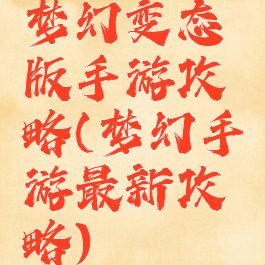 梦幻变态
版手游攻
略(梦幻手
游最新攻
略)